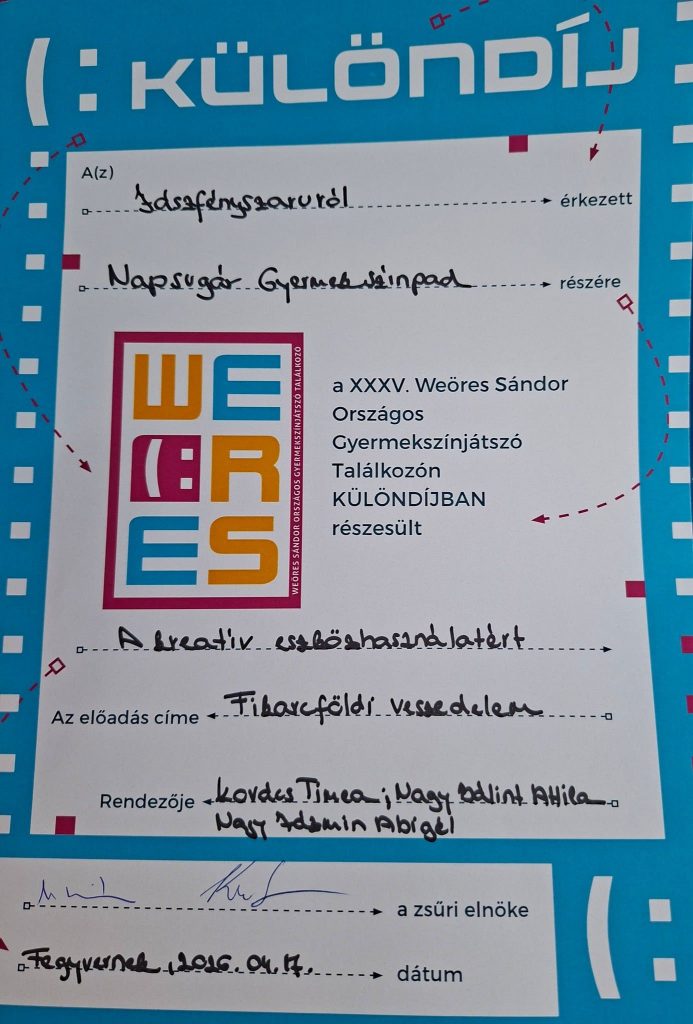 (: KÜLÖNDÍJ
A(z)
Jászfényszaruról érkezett
Napsugár Gyermekszínpad részére
WE
(:R
ES
WEÖRES SÁNDOR ORSZÁGOS GYERMEKSZÍNJÁTSZÓ TALÁLKOZÓ
a XXXV. Weöres Sándor
Országos
Gyermekszínjátszó
Találkozón
KÜLÖNDÍJBAN
részesült
A kreatív eszközhasználatért
Az előadás címe Fikarcföldi veszedelem
Rendezője Kovács Tímea; Nagy Bálint Attila
Nagy Jázmin Abigél
a zsűri elnöke
Fegyvernek, 2026.04.17. dátum
(: